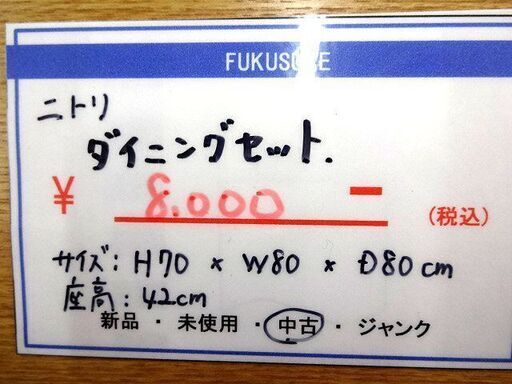 FUKUSURE
ニトリ
ダイニングセット.
¥ 8.000 ー (税込)
サイズ: H70 × W80 × D80cm
座高: 42cm
新品 ・ 未使用 ・ 中古 ・ ジャンク